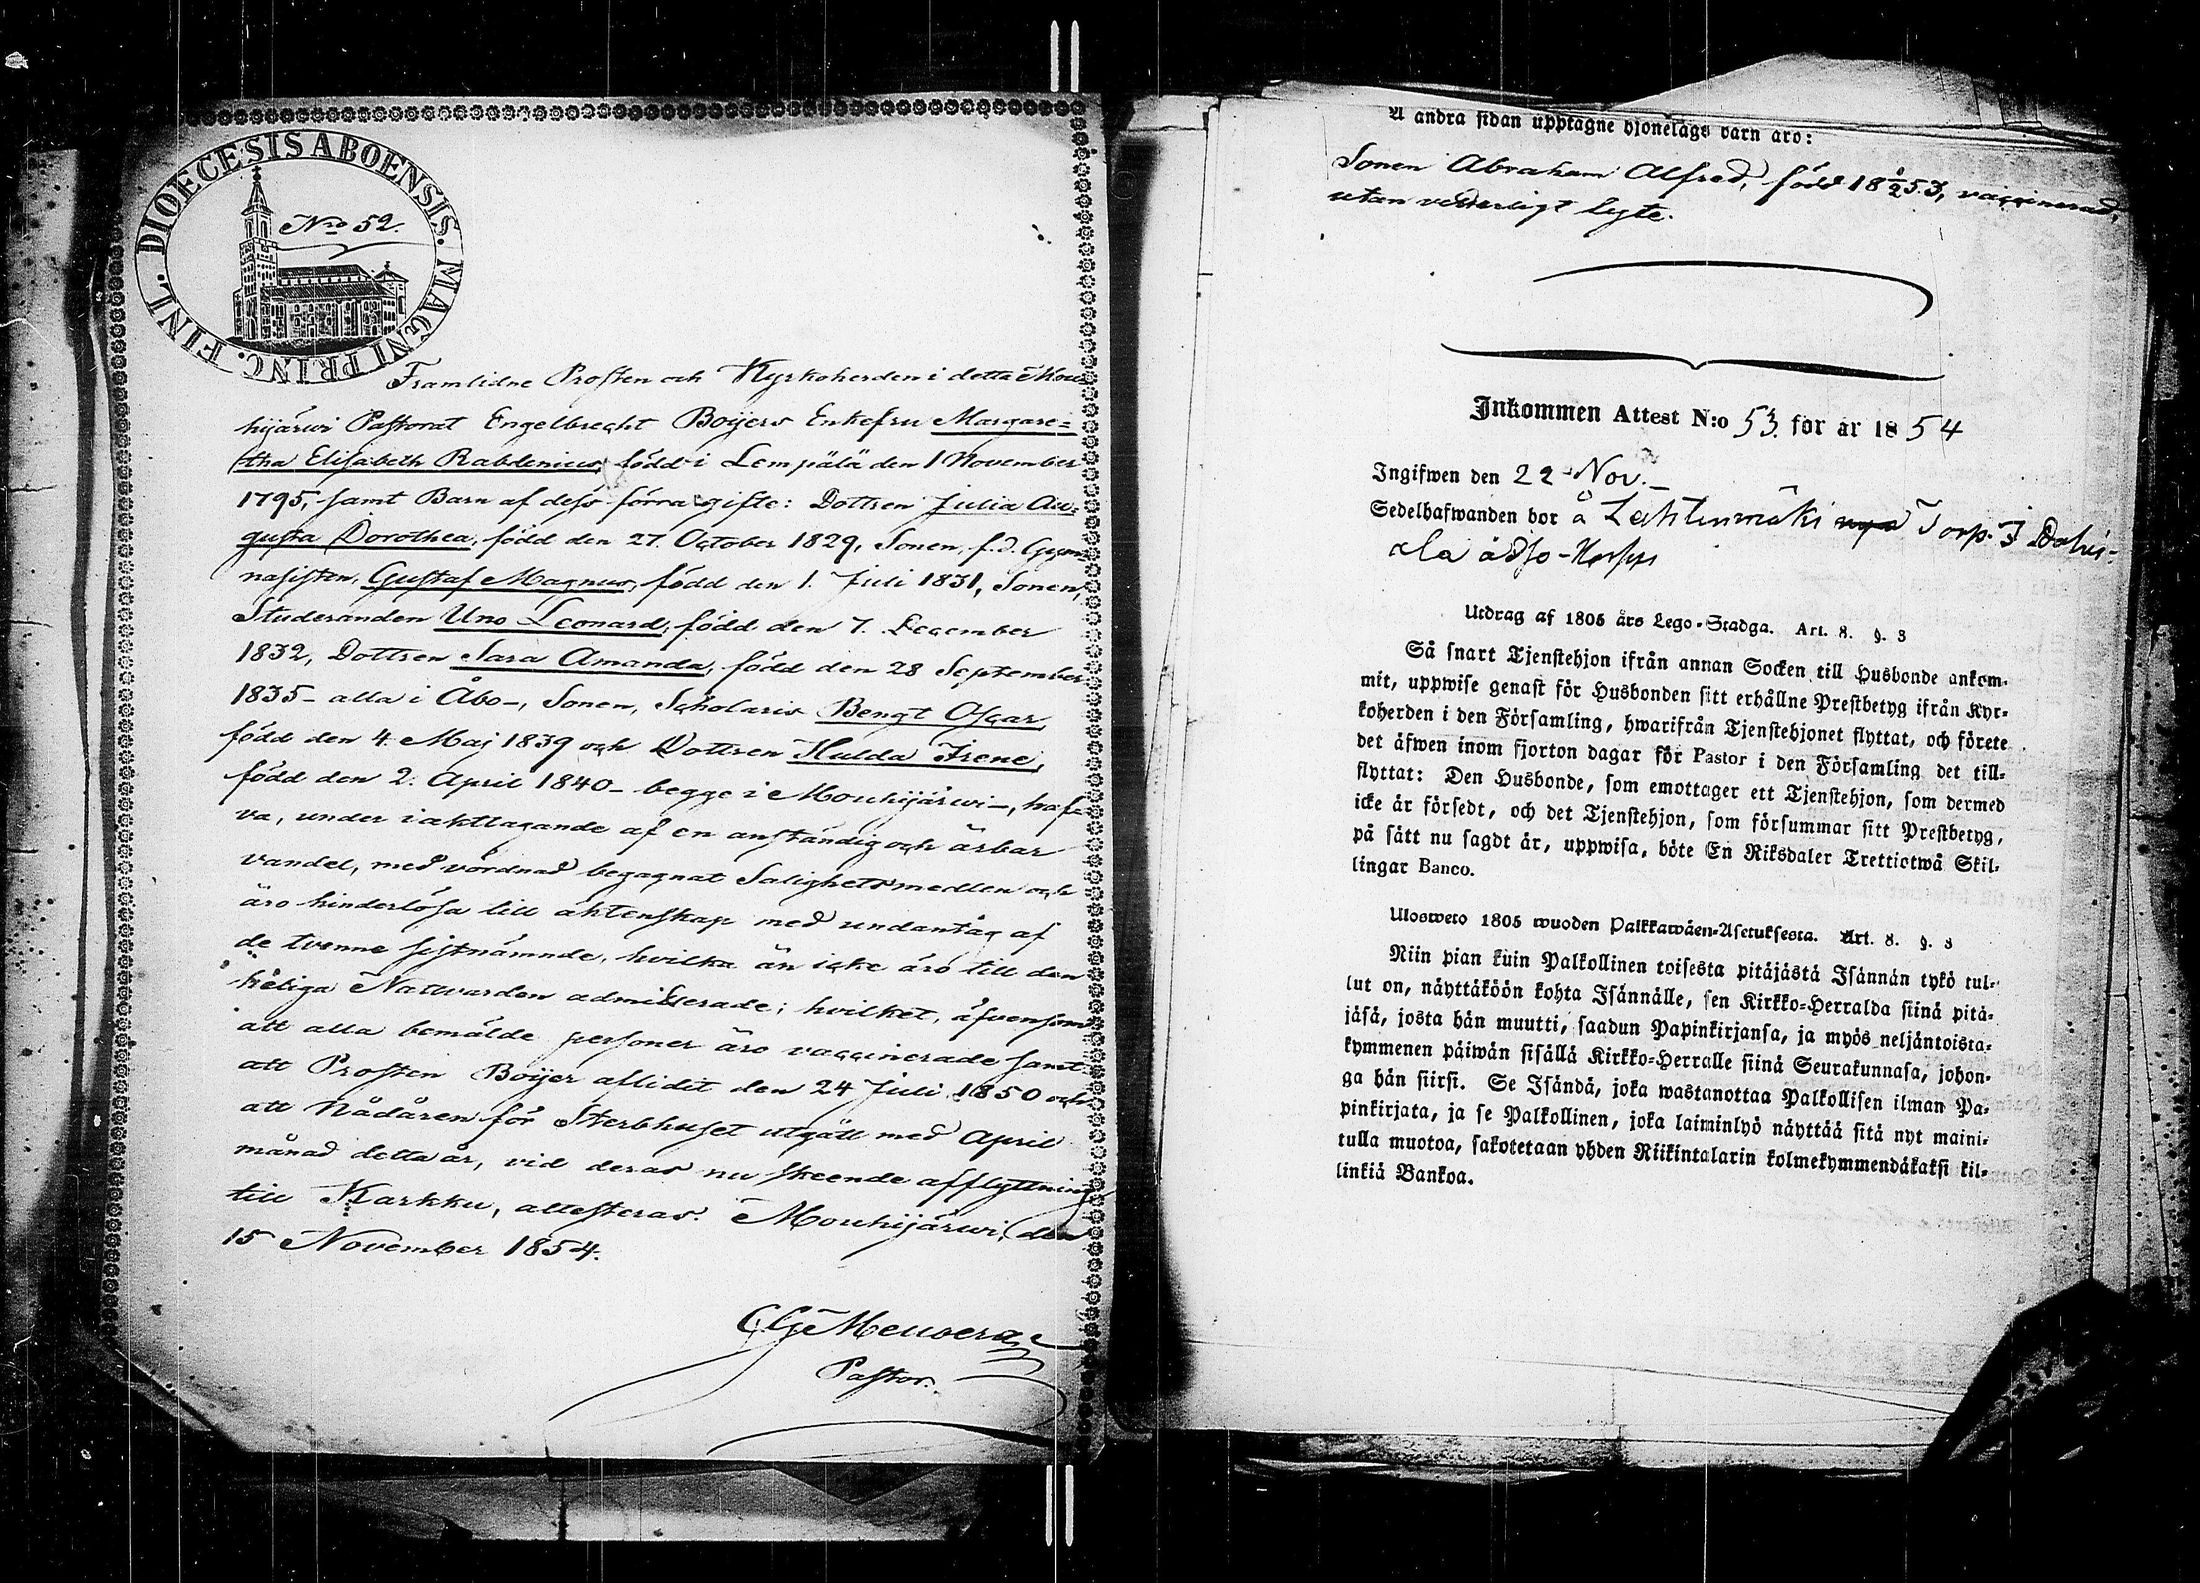 DIOECESIS ABOENSIS. MAGNI PRINC. FINL.
Nro 52.
Framlidne Prosten och Kyrkoherden i detta Mou-
hijärwi Pastorat Engelbrecht Boijers Enkefru Margare-
tha Elisabeth Rabdenius, född i Lempälä den 1 November
1795, samt Barn af dess förra gifte: Dottren Julia Au-
gusta Dorothea, född den 27. October 1829, Sonen, f.d. Gym-
nasisten, Gustaf Magnus, född den 1. Juli 1831, Sonen,
Studeranden Uno Leonard, född den 7. December
1832, Dottren Sara Amanda, född den 28 September
1835 – alla i Åbo –, Sonen, Scholaris Bengt Oscar,
född den 4. Maj 1839 och Dottren Hulda Irene,
född den 2. April 1840 – begge i Mouhijärwi –, haf-
va, under iakttagande af en anständig och ärbar
vandel, med vördnad begagnat Salighetsmedlen och
äro hinderlösa till aktenskap med undantag af
de tvenne sistnämnde, hvilka än icke äro till den
heliga Nattvarden admitterade; hvilket, äfvensom
att alla bemälde personer äro vaccinerade samt
att Prosten Boijer aflidit den 24 Juli 1850 och
att Nådåren för Sterbhuset utgått med April
månad detta år, vid deras nu skeende afflyttning
till Karkku, attesteras. Mouhijärwi, den
15 November 1854.
Pastor.
Å andra sidan upptagne hjonelags barn äro:
Sonen Abraham Alfred, född 18 53, vaccinerad,
utan lyte.
Inkommen Attest N:o 53. för år 1854
Ingifwen den 22 Nov.
Sedelhafwanden bor å Lahtenmäki Torp.
Utdrag af 1805 års Lego-Stadga. Art. 8. §. 3
Så snart Tjenstehjon ifrån annan Socken till Husbonde ankom-
mit, uppwise genast för Husbonden sitt erhållne Prestbetyg ifrån Kyr-
koherden i den Församling, hwarifrån Tjenstehjonet flyttat, och förete
det äfwen inom fjorton dagar för Pastor i den Församling det till-
flyttat: Den Husbonde, som emottager ett Tjenstehjon, som dermed
icke är försedt, och det Tjenstehjon, som försummar sitt Prestbetyg,
på sätt nu sagdt är, uppwisa, böte En Riksdaler Trettiotwå Skil-
lingar Banco.
Ulosweto 1805 wuoden Palkkawäen-Asetuksesta. Art. 8. §. 3
Niin pian kuin Palkollinen toisesta pitäjästä Isännän tykö tul-
lut on, näyttäköön kohta Isännälle, sen Kirkko-Herralda siinä pitä-
jäsä, josta hän muutti, saadun Papinkirjansa, ja myös neljäntoista-
kymmenen päiwän sisällä Kirkko-Herralle siinä Seurakunnasa, johon-
ga hän siirsi. Se Isändä, joka wastanottaa Palkollisen ilman Pa-
pinkirjata, ja se Palkollinen, joka laiminlyö näyttää sitä nyt maini-
tulla muotoa, sakotetaan yhden Riikintalarin kolmekymmendäkaksi kil-
linkiä Bankoa.